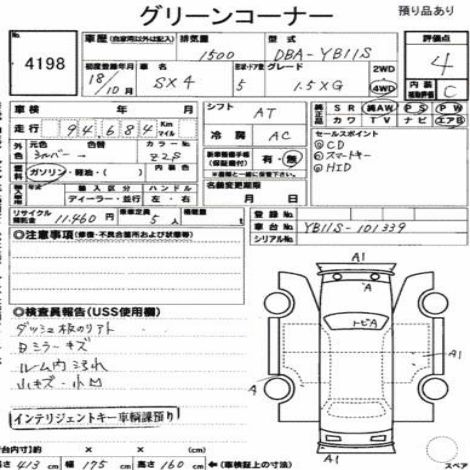 グリーンコーナー 預り品あり
No. 4198
車歴(自家用以外は記入) 排気量 1500 型式 DBA-YB11S 評価点 4
初度登録年月 18/10 車名 SX4 形状・ドア数 5 グレード 1.5XG 2WD 4WD
内装 C
車検 年 月 シフト AT
純正品 SR 純AW PS PW
カワ TV ナビ エアB
走行 94,684 Km マイル 冷房 AC
セールスポイント
◎CD
◎スマートキー
◎HID
外色 元色 シルバー 色替 カラーNo. Z2S
新車整備手帳(保証書付) 有・無
燃料 ガソリン・軽油・( ) 内装色
輸入車 輸入区分 ハンドル
ディーラー・並行 左・右
名義変更期限 月 日
リサイクル預託金 11,460 円 乗車定員 5 人 積載量 t
登録No.
車台No. YB11S-101339
シリアルNo.
◎注意事項(修復・不具合箇所および状態等)
◎検査員報告(USS使用欄)
ダッシュ板のリアト
Bミラーキズ
ルーム内汚れ
小キズ・小凹
インテリジェントキー車輌課預り
A1
A
トビA
A1
A
A1
× × (cm)
長さ 413 cm 幅 175 cm 高さ 160 cm ←(車検証上の寸法)